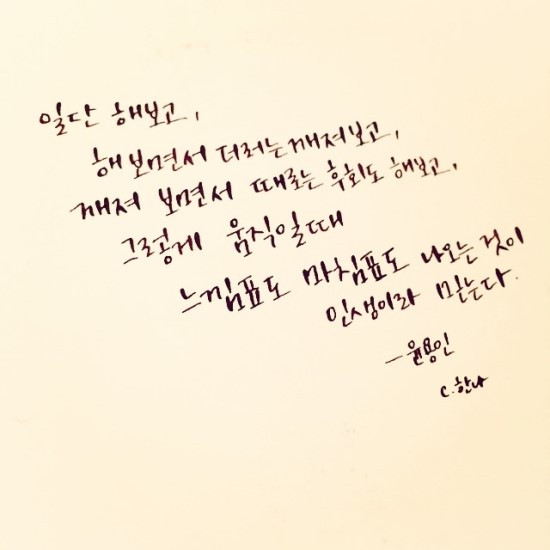 일단 해보고,
해보면서 더러는 깨져보고,
깨져 보면서 때로는 후회도 해보고,
그렇게 움직일때
느낌표도 마침표도 나오는 것이
인생이라 믿는다.
- 윤용인
c. 한나